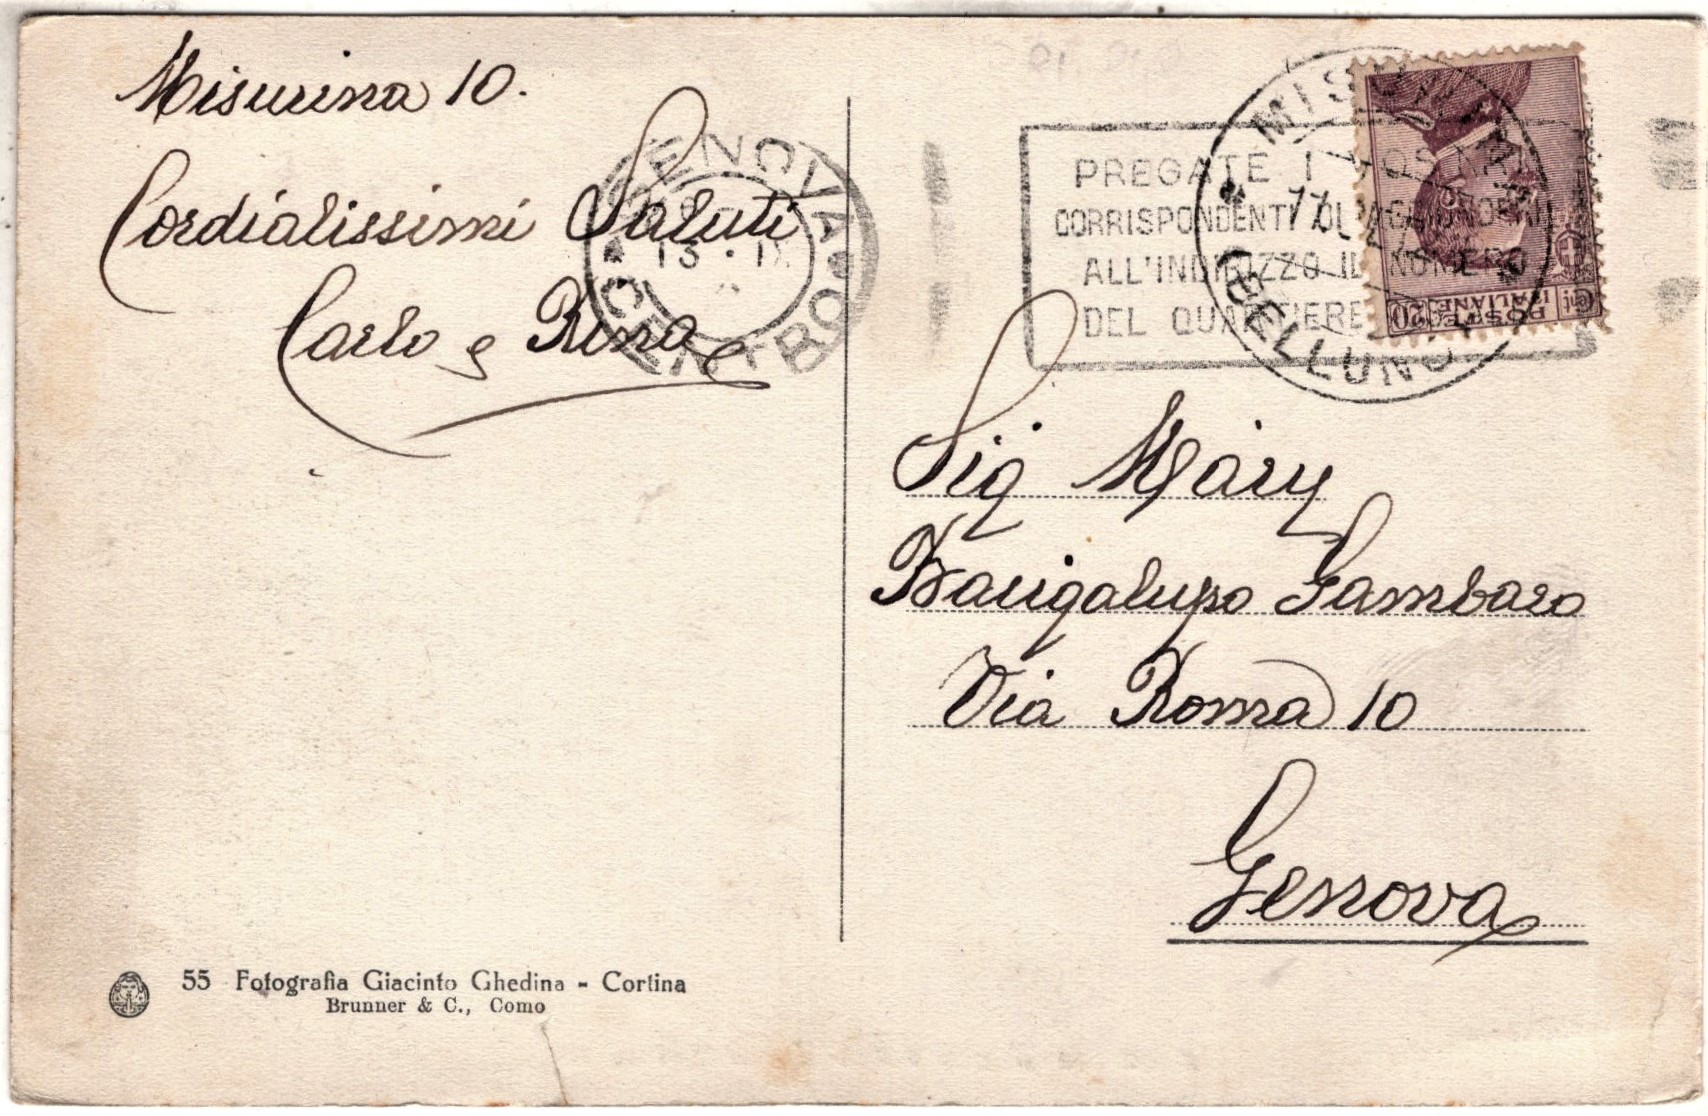 Misurina 10.
Cordialissimi Saluti
Carlo e Rina
GENOVA
CENTRO
13 · IX
MISURINA
(BELLUNO)
PREGATE I VOSTRI
CORRISPONDENTI DI AGGIUNGERE
ALL'INDIRIZZO IL NUMERO
DEL QUARTIERE
POSTE
ITALIANE
Cent. 20
Sig Mary
Bacigalupo Gambaro
Via Roma 10
Genova
55 Fotografia Giacinto Ghedina - Cortina
Brunner & C., Como